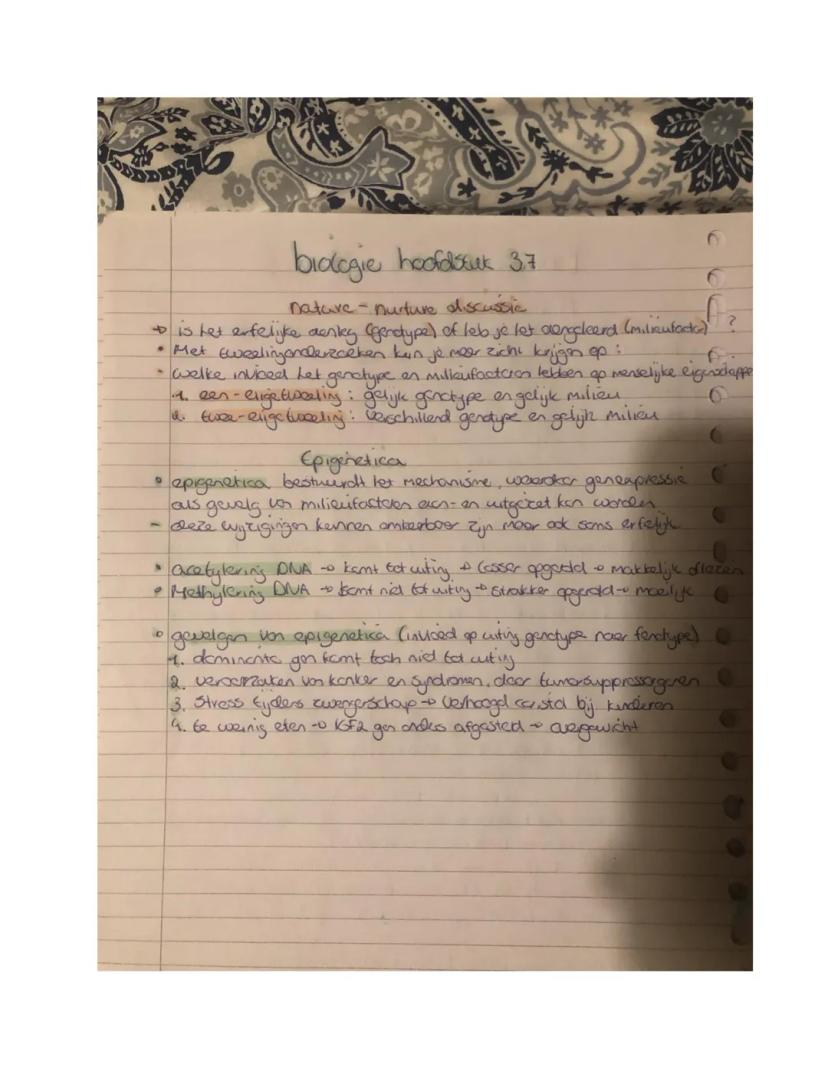 biologie hoofdstuk 3.7
nature - nurture discussie
→ is het erfelijke aanleg (genotype) of heb je het aangeleerd (milieufactor) ?
• Met tweelingonderzoeken kun je meer zicht krijgen op :
- welke invloed het genotype en milieufactoren hebben op menselijke eigenschappe
1. een-eiige tweeling : gelijk genotype en gelijk milieu
2. twee-eiige tweeling : verschillend genotype en gelijk milieu
Epigenetica
• epigenetica bestuurdt het mechanisme, waardoor genexpressie
als gevolg van milieufactoren aan- en uitgezet kan worden
- deze wijzigingen kunnen omkeerbaar zijn maar ook soms erfelijk
• acetylering DNA → komt tot uiting → losser opgerold → makkelijk aflezen
• Methylering DNA → komt niet tot uiting → strakker opgerold → moeilijk
• gevolgen van epigenetica (invloed op uiting genotype naar fenotype)
1. dominante gen komt toch niet tot uiting
2. veroorzaken van kanker en syndromen, door tumorsuppressorgenen
3. Stress tijdens zwangerschap → verhoogd cortisol bij kinderen
4. te weinig eten → IGF2 gen anders afgesteld → overgewicht